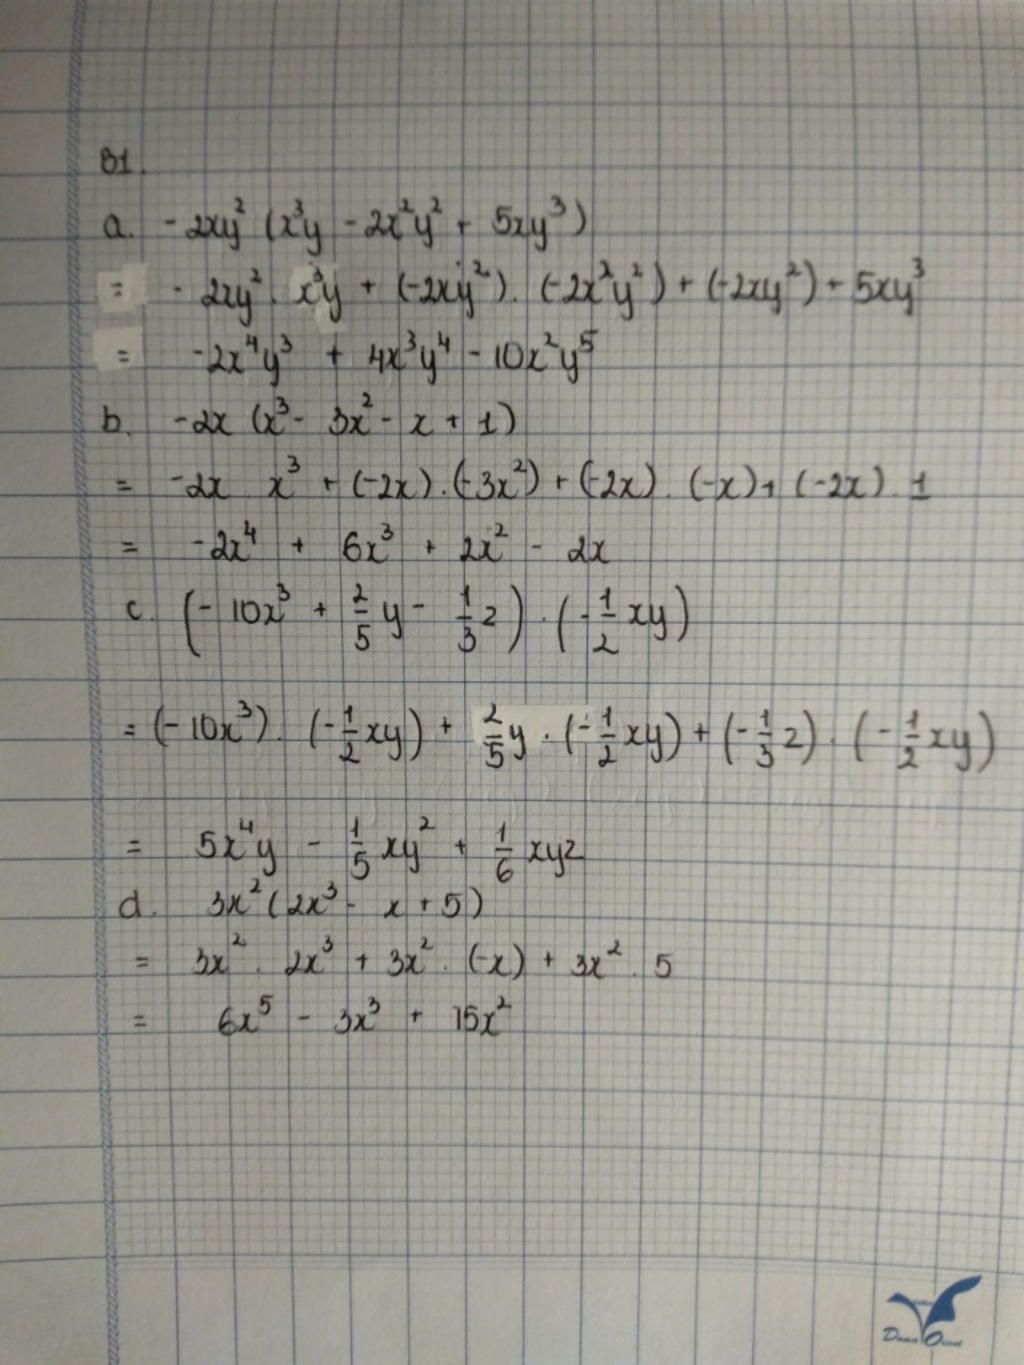 B1.
a. -2xy² (x³y - 2x²y² + 5xy³)
= -2xy² . x³y + (-2xy²) . (-2x²y²) + (-2xy²) + 5xy³
= -2x⁴y³ + 4x³y⁴ - 10x²y⁵
b. -2x (x³ - 3x² - x + 1)
= -2x x³ + (-2x) . (-3x²) + (-2x) . (-x) + (-2x) . 1
= -2x⁴ + 6x³ + 2x² - 2x
c. (-10x³ + 2/5 y - 1/3 z) . (-1/2 xy)
= (-10x³) . (-1/2 xy) + 2/5 y . (-1/2 xy) + (-1/3 z) . (-1/2 xy)
= 5x⁴y - 1/5 xy² + 1/6 xyz
d. 3x² (2x³ - x + 5)
= 3x² . 2x³ + 3x² . (-x) + 3x² . 5
= 6x⁵ - 3x³ + 15x²